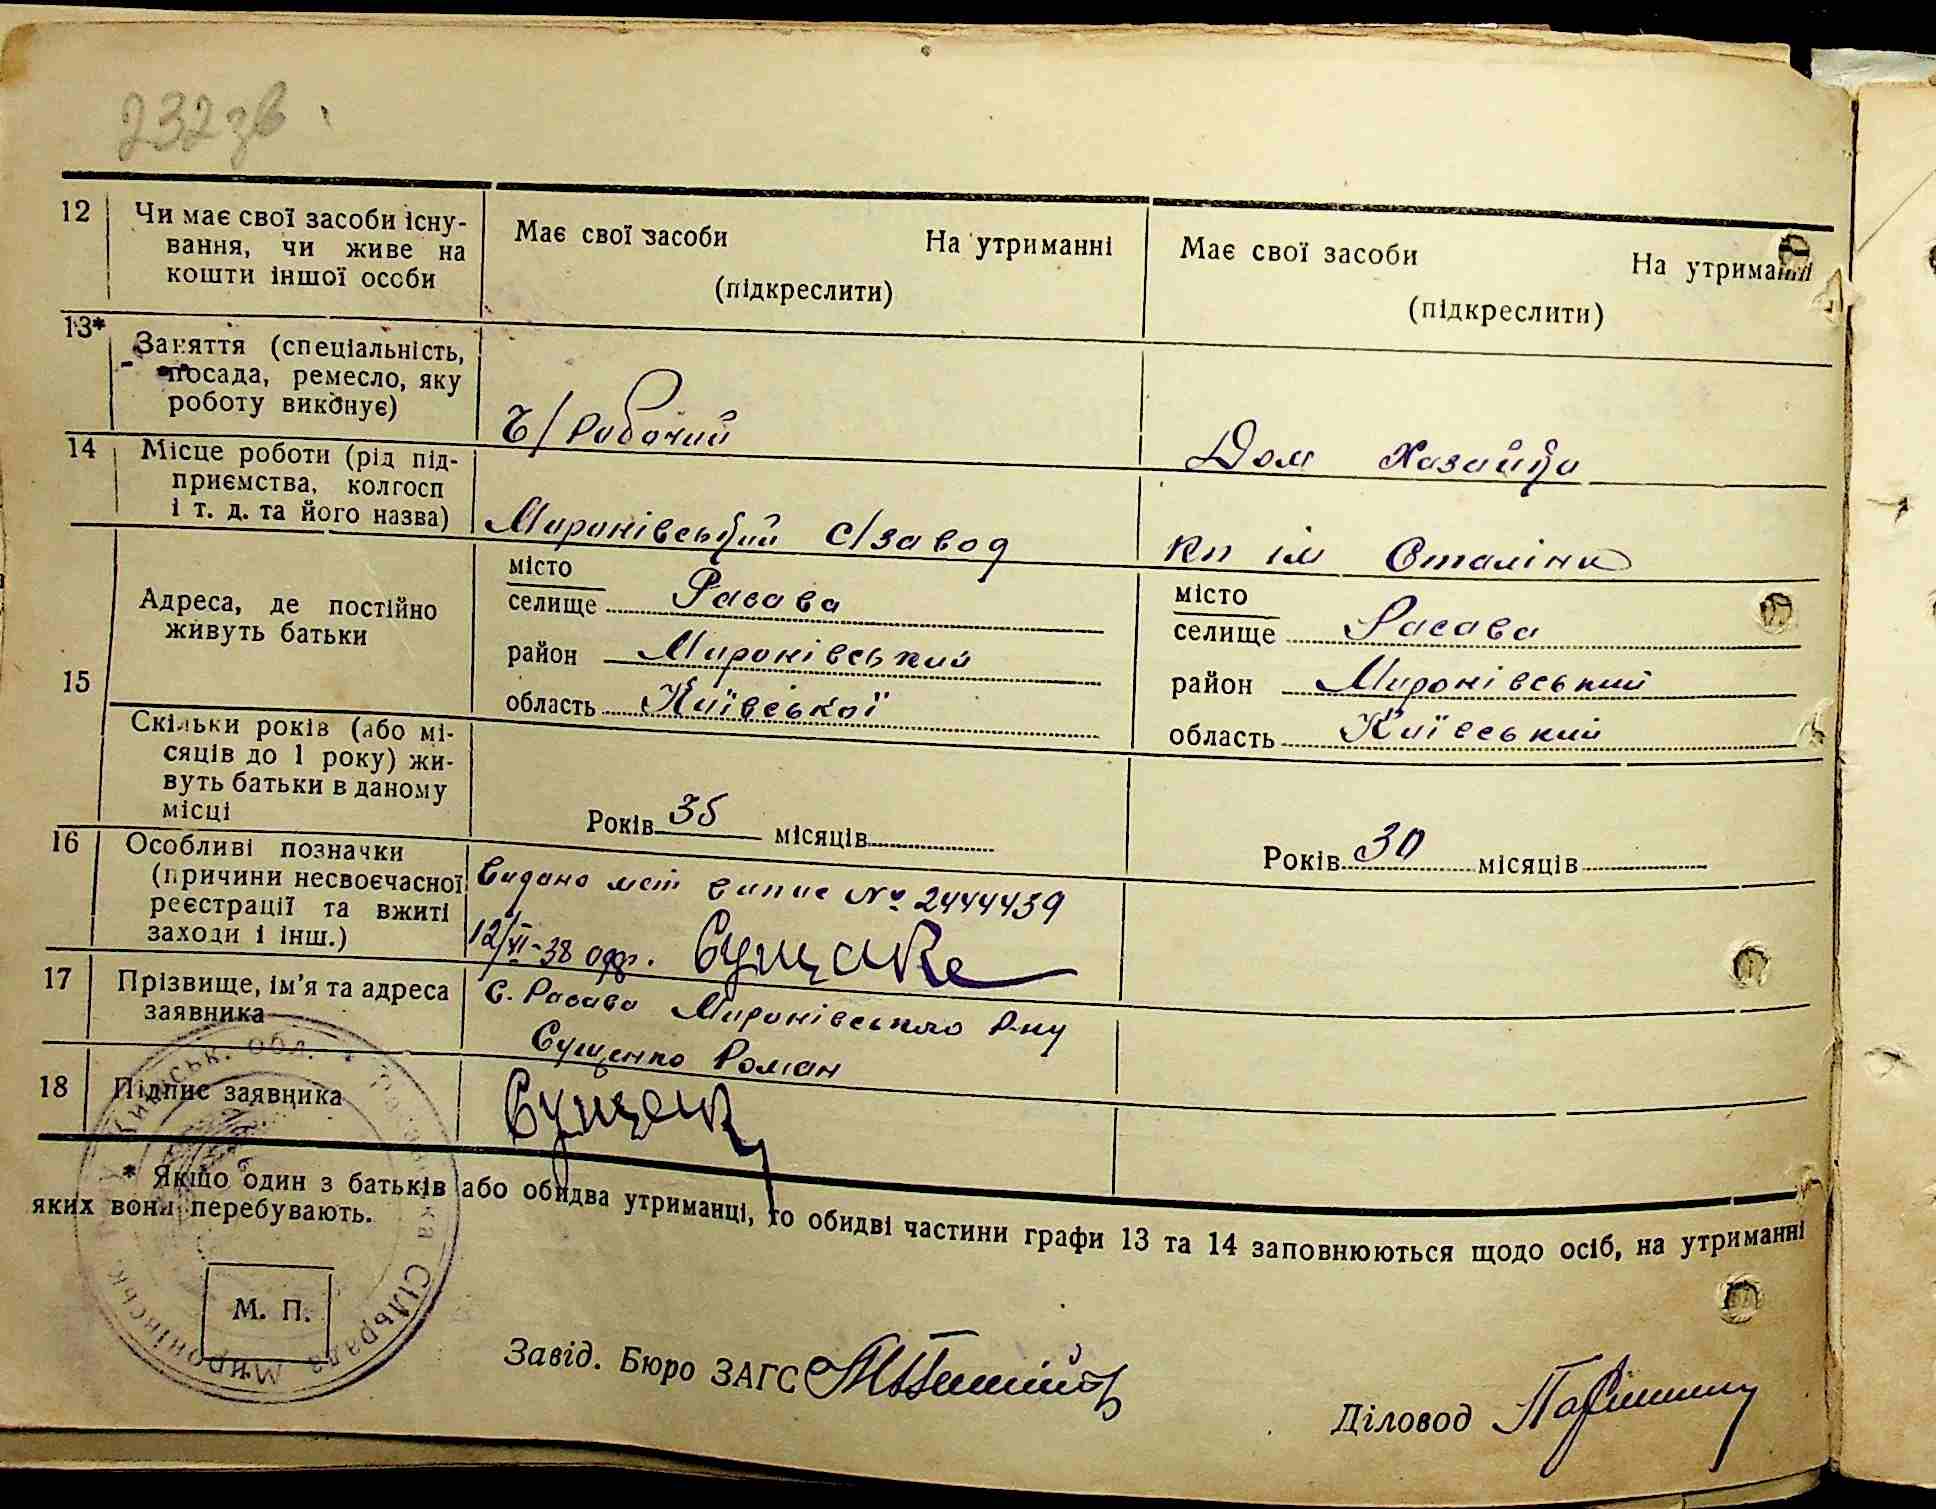 232 зв.
12 Чи має свої засоби існу-
вання, чи живе на
кошти іншої особи
Має свої засоби На утриманні
(підкреслити)
Має свої засоби На утриманні
(підкреслити)
13* Заняття (спеціальність,
посада, ремесло, яку
роботу виконує)
Ч/Рабочий
Дом Хазайка
14 Місце роботи (рід під-
приємства, колгосп
і т. д. та його назва)
Миронівський с/завод
кп ім Сталіна
15 Адреса, де постійно
живуть батьки
місто
селище Расава
район Миронівський
область Київської
місто
селище Расава
район Миронівський
область Київський
Скільки років (або мі-
сяців до 1 року) жи-
вуть батьки в даному
місці
Років 35 місяців
Років 30 місяців
16 Особливі позначки
(причини несвоєчасної
реєстрації та вжиті
заходи і інш.)
Видано мет випис № 2444439
12/VI-38 одер. Сущенко
17 Прізвище, ім'я та адреса
заявника
с. Расава Миронівського р-ну
Сущенко Роман
18 Підпис заявника
Сущенк
* Якщо один з батьків або обидва утриманці, то обидві частини графи 13 та 14 заповнюються щодо осіб, на утриманні
яких вони перебувають.
М. П.
Київськ. обл. Расавська Сільрада Миронівськ. р-ну
Завід. Бюро ЗАГС
Діловод